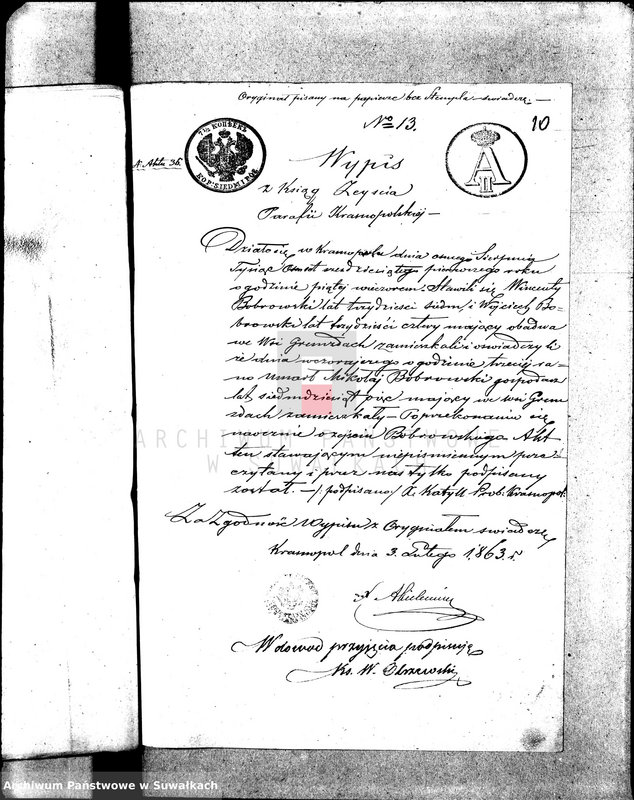 Oryginał pisany na papierze bez Stempla świadczę. —
№ 13.
10
N. Aktu 36.
7½ КОПѢЕКЪ
KOP: SIEDM I PÓŁ
A II
Wypis
z Ksiąg Zeyścia
Parafii Krasnopolskiéj —
Działo się w Krasnopolu dnia osmego Sierpnia
Tysiąc Ośmset sześdziesiątego pierwszego roku
o godzinie piątej wieczorem. Stawili się Wincenty
Bobrowski lat trzydzieści siedm, i Wojciech Bo-
browski lat trzydzieści cztery mający obadwa
we Wsi Gremzdach zamieszkali i oświadczyli
że dnia wczorajszego o godzinie trzeciéj ra-
no umarł Mikołaj Bobrowski gospodarz
lat siedmdziesiąt pięć mający we wsi Grem
zdach zamieszkały — Po przekonaniu się
naocznie o zejściu Bobrowskiego Akt
ten stawającym niepiśmiennym prze-
czytany i przez nas tylko podpisany
został. — /podpisano/ X. Katyll Prob. Krasnopol.
Za Zgodność Wypisu z Oryginałem świadczę
Krasnopol dnia 3. Lutego 1863 r.
W dowód przyjęcia podpisuję
Ks. W.
ARCHIWUM PAŃSTWOWE
W SUWAŁKACH
Archiwum Państwowe w Suwałkach